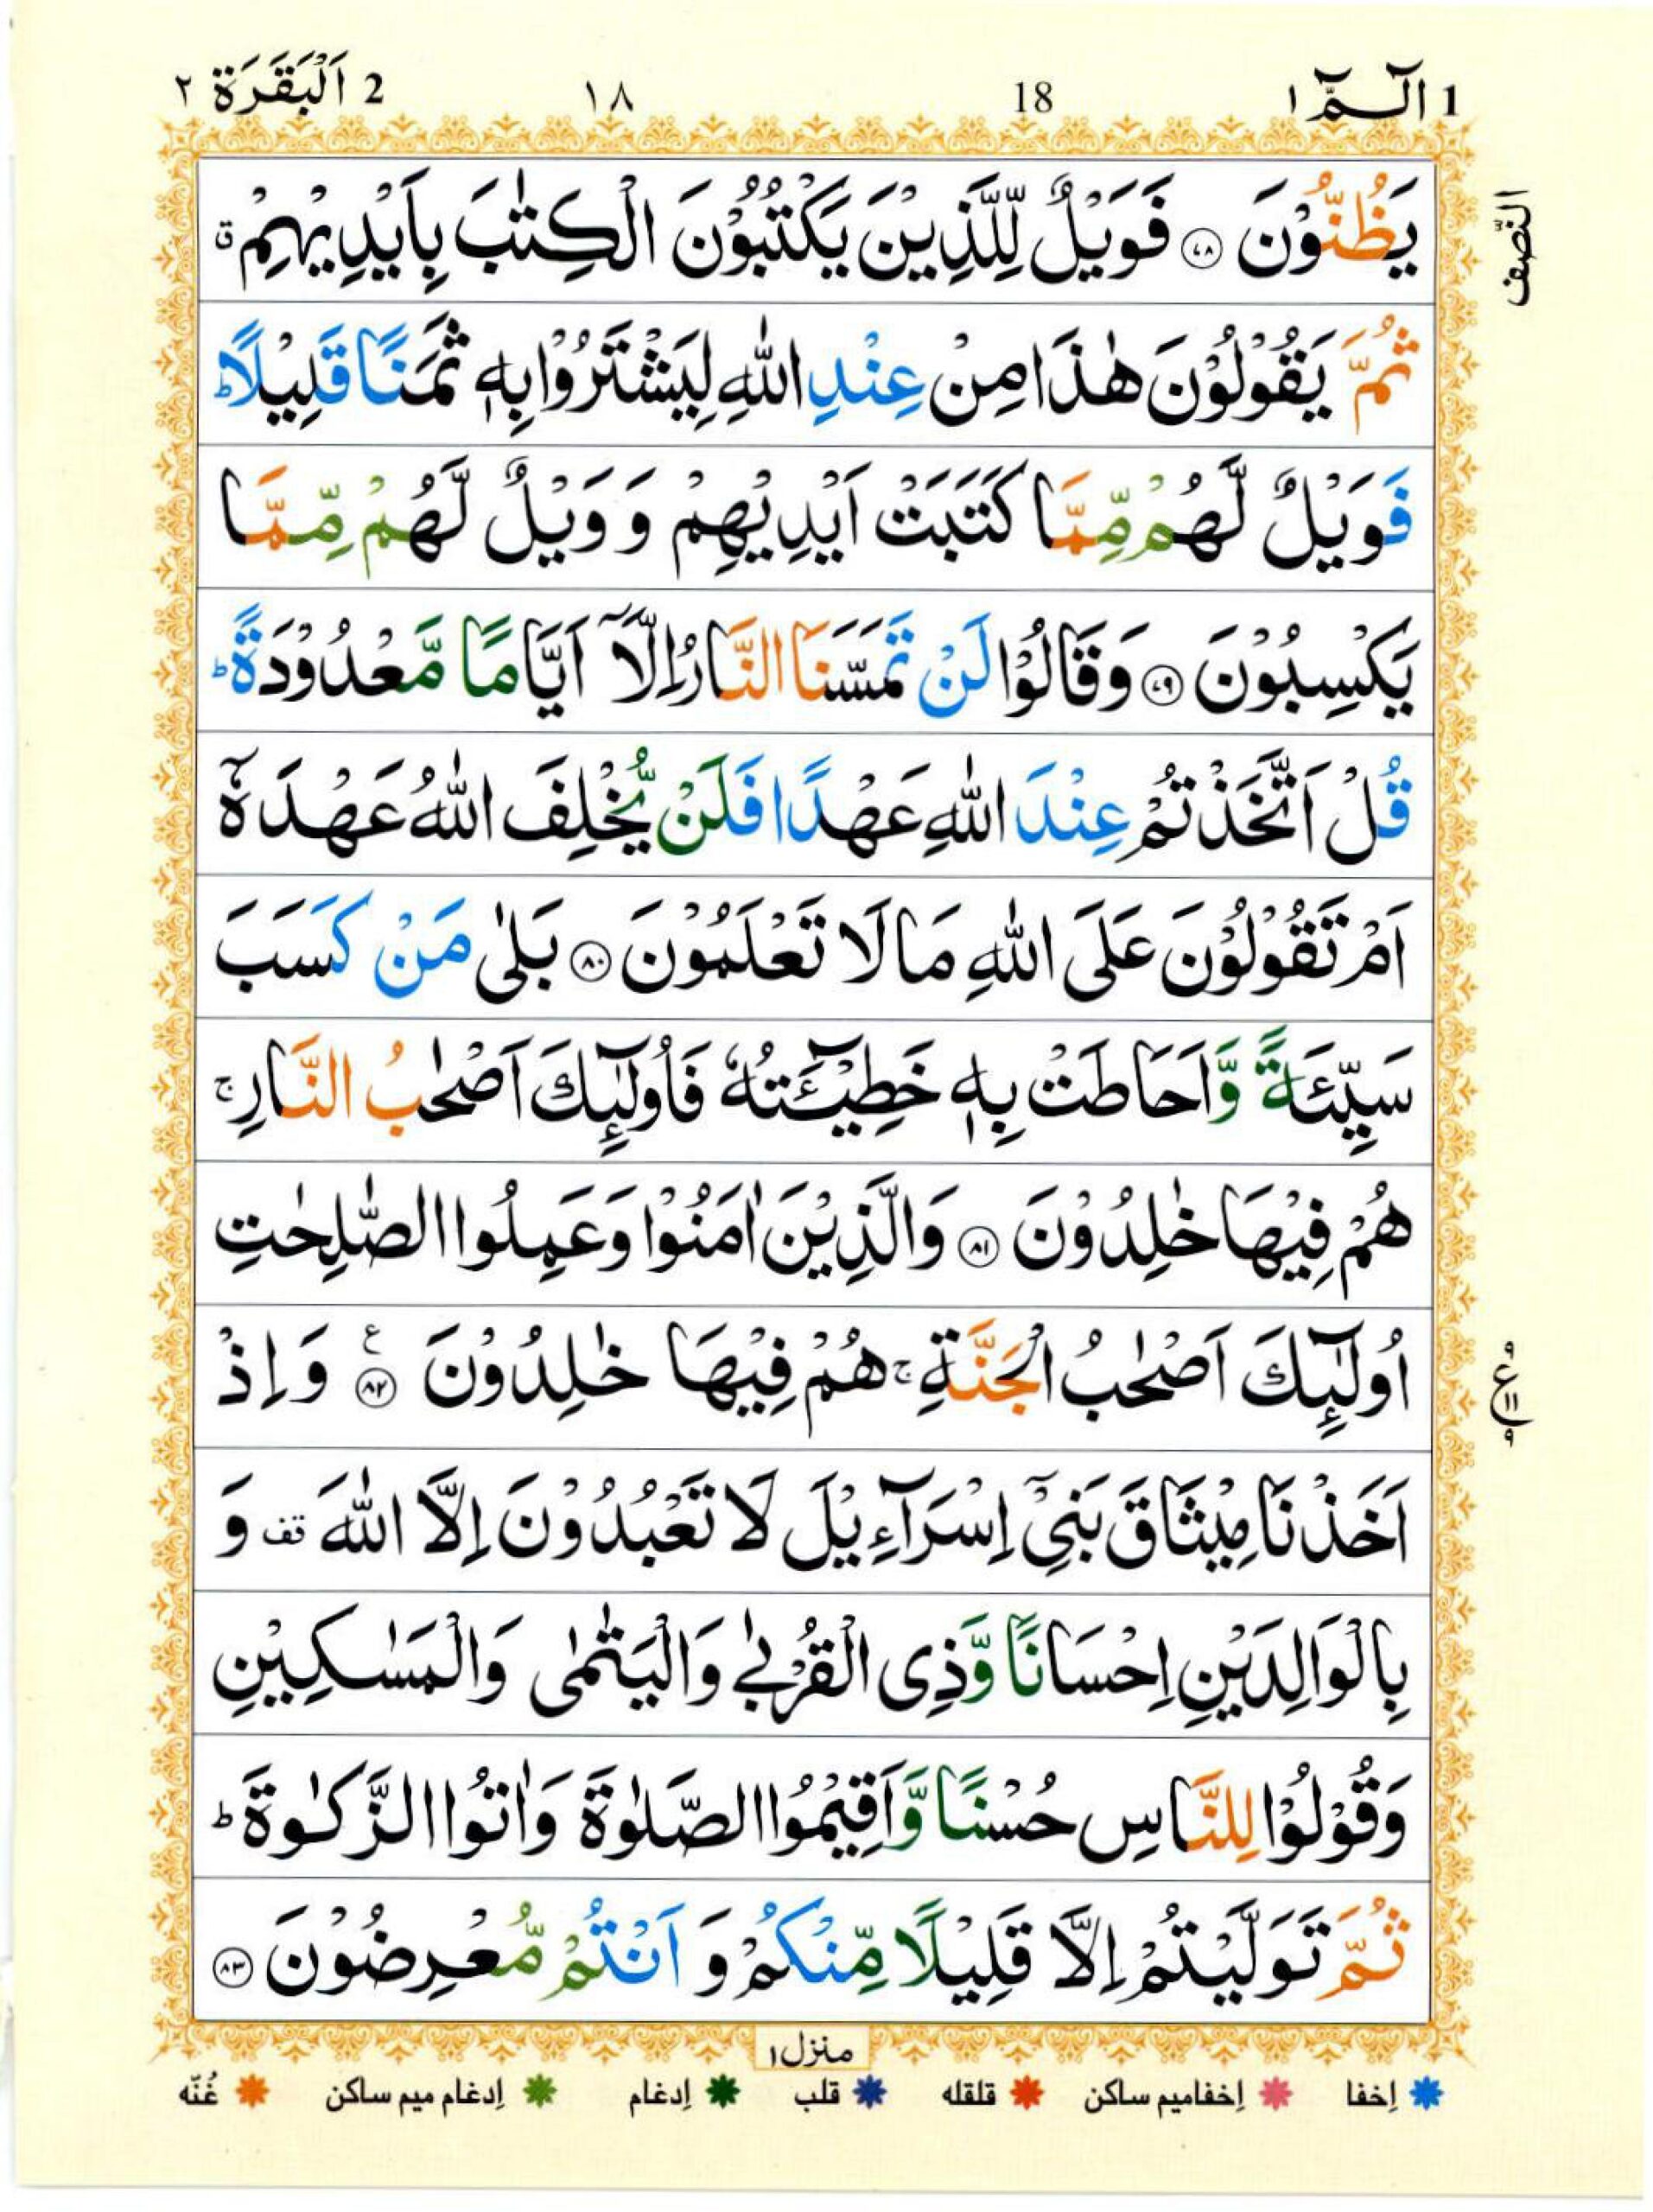 1 الٓـمّٓ ١ 18 ١٨ 2 اَلْبَقَرَة ٢
النّصف
يَظُنُّوْنَ ﴿٧٨﴾ فَوَيْلٌ لِّلَّذِيْنَ يَكْتُبُوْنَ الْكِتٰبَ بِاَيْدِيْهِمْ ۗ ق
ثُمَّ يَقُوْلُوْنَ هٰذَا مِنْ عِنْدِ اللّٰهِ لِيَشْتَرُوْا بِهٖ ثَمَنًا قَلِيْلًا ؕ
فَوَيْلٌ لَّهُمْ مِّمَّا كَتَبَتْ اَيْدِيْهِمْ وَ وَيْلٌ لَّهُمْ مِّمَّا
يَكْسِبُوْنَ ﴿٧٩﴾ وَقَالُوْا لَنْ تَمَسَّنَا النَّارُ اِلَّآ اَيَّامًا مَّعْدُوْدَةً ؕ
قُلْ اَتَّخَذْتُمْ عِنْدَ اللّٰهِ عَهْدًا فَلَنْ يُّخْلِفَ اللّٰهُ عَهْدَهٗٓ
اَمْ تَقُوْلُوْنَ عَلَى اللّٰهِ مَا لَا تَعْلَمُوْنَ ﴿٨٠﴾ بَلٰى مَنْ كَسَبَ
سَيِّئَةً وَّاَحَاطَتْ بِهٖ خَطِيْٓئَتُهٗ فَاُولٰٓئِكَ اَصْحٰبُ النَّارِ ۚ
هُمْ فِيْهَا خٰلِدُوْنَ ﴿٨١﴾ وَالَّذِيْنَ اٰمَنُوْا وَعَمِلُوا الصّٰلِحٰتِ
اُولٰٓئِكَ اَصْحٰبُ الْجَنَّةِ ۚ هُمْ فِيْهَا خٰلِدُوْنَ ﴿٨٢﴾ ع وَاِذْ
اَخَذْنَا مِيْثَاقَ بَنِيْٓ اِسْرَآءِيْلَ لَا تَعْبُدُوْنَ اِلَّا اللّٰهَ قف وَ
بِالْوَالِدَيْنِ اِحْسَانًا وَّذِى الْقُرْبٰى وَالْيَتٰمٰى وَالْمَسٰكِيْنِ
وَقُوْلُوْا لِلنَّاسِ حُسْنًا وَّاَقِيْمُوا الصَّلٰوةَ وَاٰتُوا الزَّكٰوةَ ؕ
ثُمَّ تَوَلَّيْتُمْ اِلَّا قَلِيْلًا مِّنْكُمْ وَ اَنْتُمْ مُّعْرِضُوْنَ ﴿٨٣﴾
منزل ١
إخفا إخفامیم ساکن قلقله قلب إدغام إدغام میم ساکن غُنّه